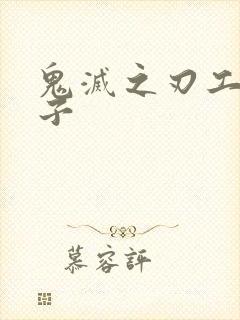 鬼灭之刃工
子
慕容評